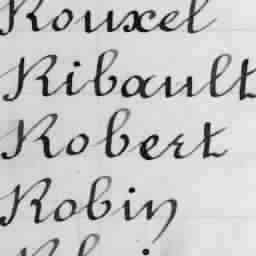 Rouxel
Ribault
Robert
Robin